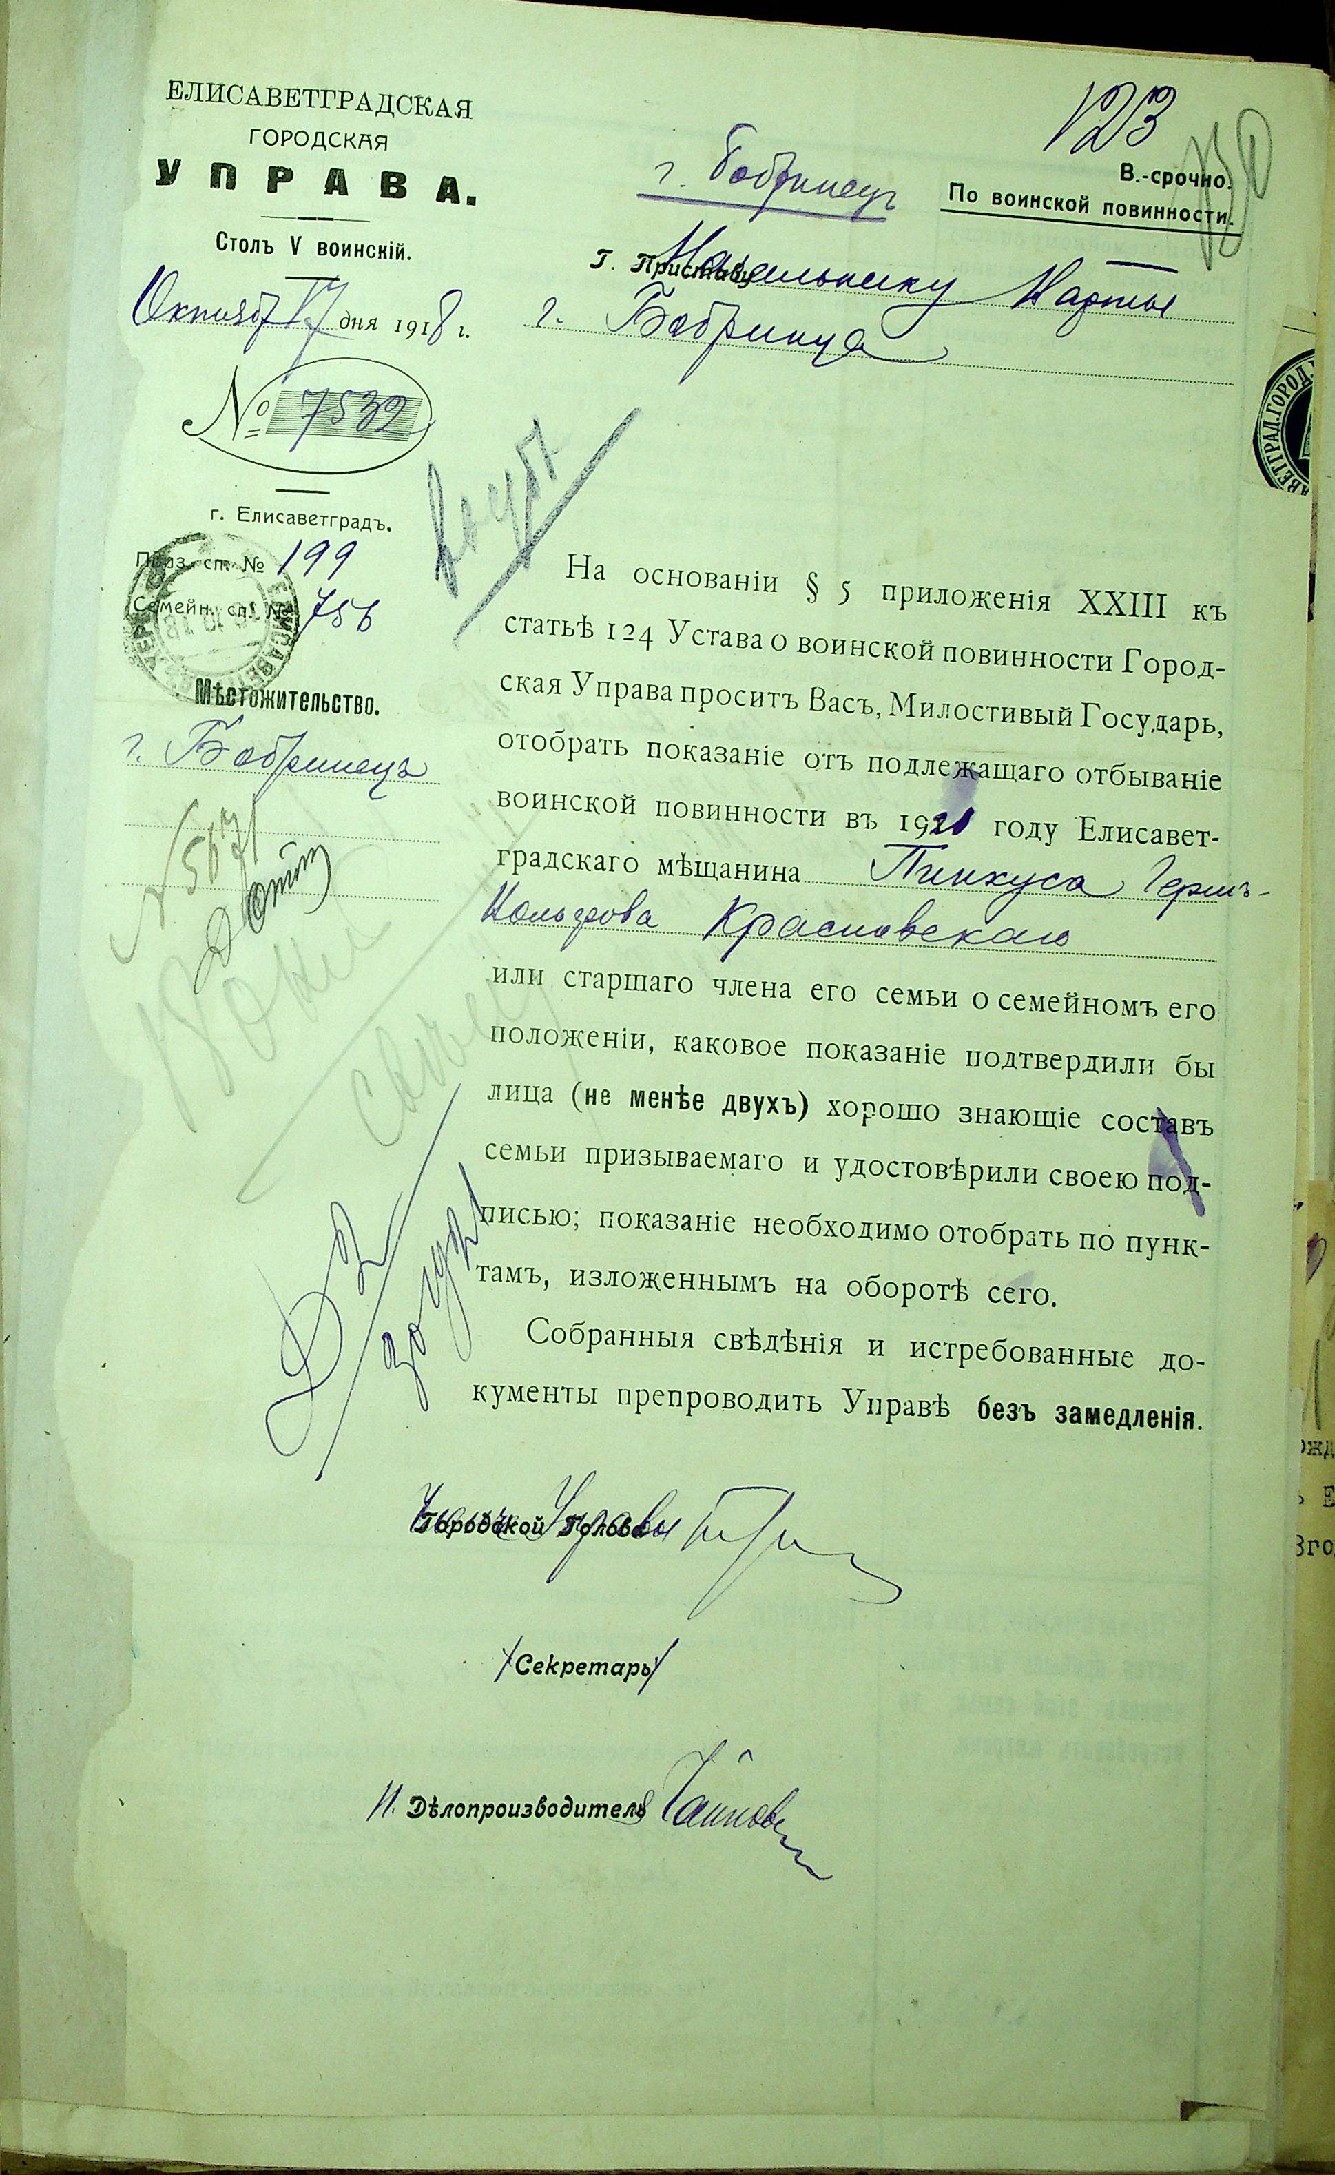 ЕЛИСАВЕТГРАДСКАЯ
ГОРОДСКАЯ
УПРАВА.
Столъ V воинскій.
Октября 17 дня 1918 г.
№ 7532
г. Елисаветградъ.
Приз. сп. № 199
Семейн. сп. № 756
Мѣстожительство.
г. Бобринецъ
123
В.-срочно.
По воинской повинности.
г. Бобринецъ
Г. Приставу Начальнику Варты
г. Бобринца
На основаніи § 5 приложенія XXIII къ
статьѣ 124 Устава о воинской повинности Город-
ская Управа проситъ Васъ, Милостивый Государь,
отобрать показаніе отъ подлежащаго отбываніе
воинской повинности въ 1921 году Елисавет-
градскаго мѣщанина Пинхуса Герш-
Кольфова Красновскаго
или старшаго члена его семьи о семейномъ его
положеніи, каковое показаніе подтвердили бы
лица (не менѣе двухъ) хорошо знающіе составъ
семьи призываемаго и удостовѣрили своею под-
писью; показаніе необходимо отобрать по пунк-
тамъ, изложеннымъ на оборотѣ сего.
Собранныя свѣдѣнія и истребованные до-
кументы препроводить Управѣ безъ замедленія.
Городской Голова
Членъ Управы
Секретарь
И. Дѣлопроизводителя